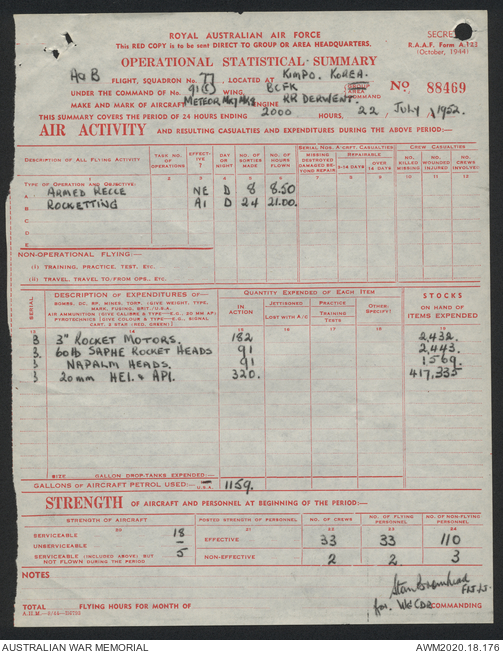 ROYAL AUSTRALIAN AIR FORCE
This RED COPY is to be sent DIRECT TO GROUP OR AREA HEADQUARTERS.
SECRE
R.A.A.F. Form A.122
(October, 1944)
OPERATIONAL STATISTICAL SUMMARY
A & B FLIGHT, SQUADRON No. 77, LOCATED AT KIMPO, KOREA.
UNDER THE COMMAND OF No. 91(C) WING, BCFK COMMAND No 88469
MAKE AND MARK OF AIRCRAFT METEOR ENGINE RR DERWENT.
THIS SUMMARY COVERS THE PERIOD OF 24 HOURS ENDING 2000 HOURS, 22 July, 1952.
AIR ACTIVITY AND RESULTING CASUALTIES AND EXPENDITURES DURING THE ABOVE PERIOD:—
SERIAL NOS. A'CRFT. CASUALTIES CREW CASUALTIES
DESCRIPTION OF ALL FLYING ACTIVITY TASK NO. OF OPERATIONS EFFECTIVE ? DAY OR NIGHT NO. OF SORTIES MADE NO. OF HOURS FLOWN MISSING DESTROYED DAMAGED BEYOND REPAIR REPAIRABLE 3-14 DAYS OVER 14 DAYS NO. KILLED MISSING NO. WOUNDED INJURED NO. CREWS INVOLVED
1 2 3 4 5 6 7 8 9 10 11 12
TYPE OF OPERATION AND OBJECTIVE:
A. ARMED RECCE NE D 8 8.50
B. ROCKETTING A1 D 24 21.00.
C.
D.
E.
NON-OPERATIONAL FLYING:—
(I) TRAINING, PRACTICE, TEST, ETC.
(II) TRAVEL, TRAVEL TO/FROM OPS., ETC.
SERIAL DESCRIPTION OF EXPENDITURES OF— QUANTITY EXPENDED OF EACH ITEM STOCKS
BOMBS, DC, SF, MINES, TORP. (GIVE WEIGHT, TYPE, MARK, FUSING, BRIT./U.S.A.
AIR AMMUNITION (GIVE CALIBRE & TYPE—E.G., 20 MM AP)
PYROTECHNICS (GIVE COLOUR & TYPE—E.G., SIGNAL CART. 2 STAR (RED, GREEN))
IN ACTION JETTISONED LOST WITH A/C PRACTICE TRAINING TESTS OTHER: SPECIFY) ON HAND OF ITEMS EXPENDED
13 14 15 16 17 18 19
B 3" ROCKET MOTORS. 182 2,432.
60lb SAPHE ROCKET HEADS 91 2,443.
NAPALM HEADS. 91 1569.
20mm HEI. & API. 320. 417,335
SIZE GALLON DROP-TANKS EXPENDED:—
GALLONS OF AIRCRAFT PETROL USED:— U.S.A. 1159.
STRENGTH OF AIRCRAFT AND PERSONNEL AT BEGINNING OF THE PERIOD:—
STRENGTH OF AIRCRAFT POSTED STRENGTH OF PERSONNEL NO. OF CREWS NO. OF FLYING PERSONNEL NO. OF NON-FLYING PERSONNEL
20 21 22 23 24
SERVICEABLE 18 EFFECTIVE 33 33 110
UNSERVICEABLE —
SERVICEABLE (INCLUDED ABOVE) BUT NOT FLOWN DURING THE PERIOD 5 NON-EFFECTIVE 2 2 3
NOTES
for. COMMANDING
TOTAL FLYING HOURS FOR MONTH OF
AUSTRALIAN WAR MEMORIAL AWM2020.18.176